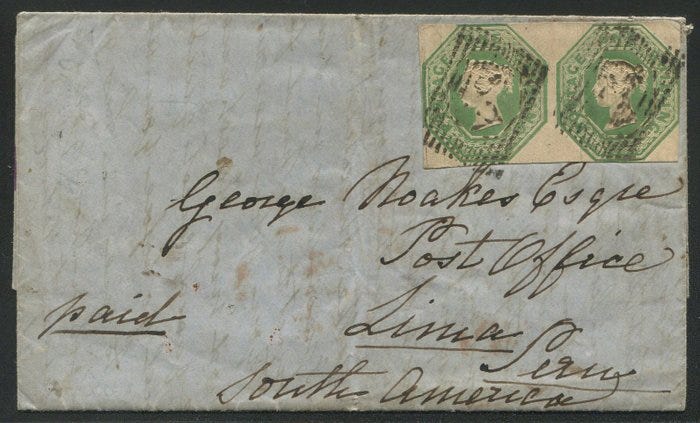 George Noakes Esqre
Post Office
paid
Lima
Peru
South America